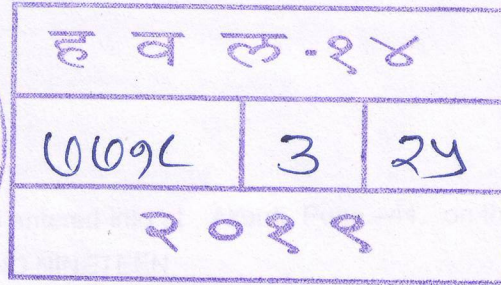 ह व ल-१४
७७१८ 3 २५
२०१९